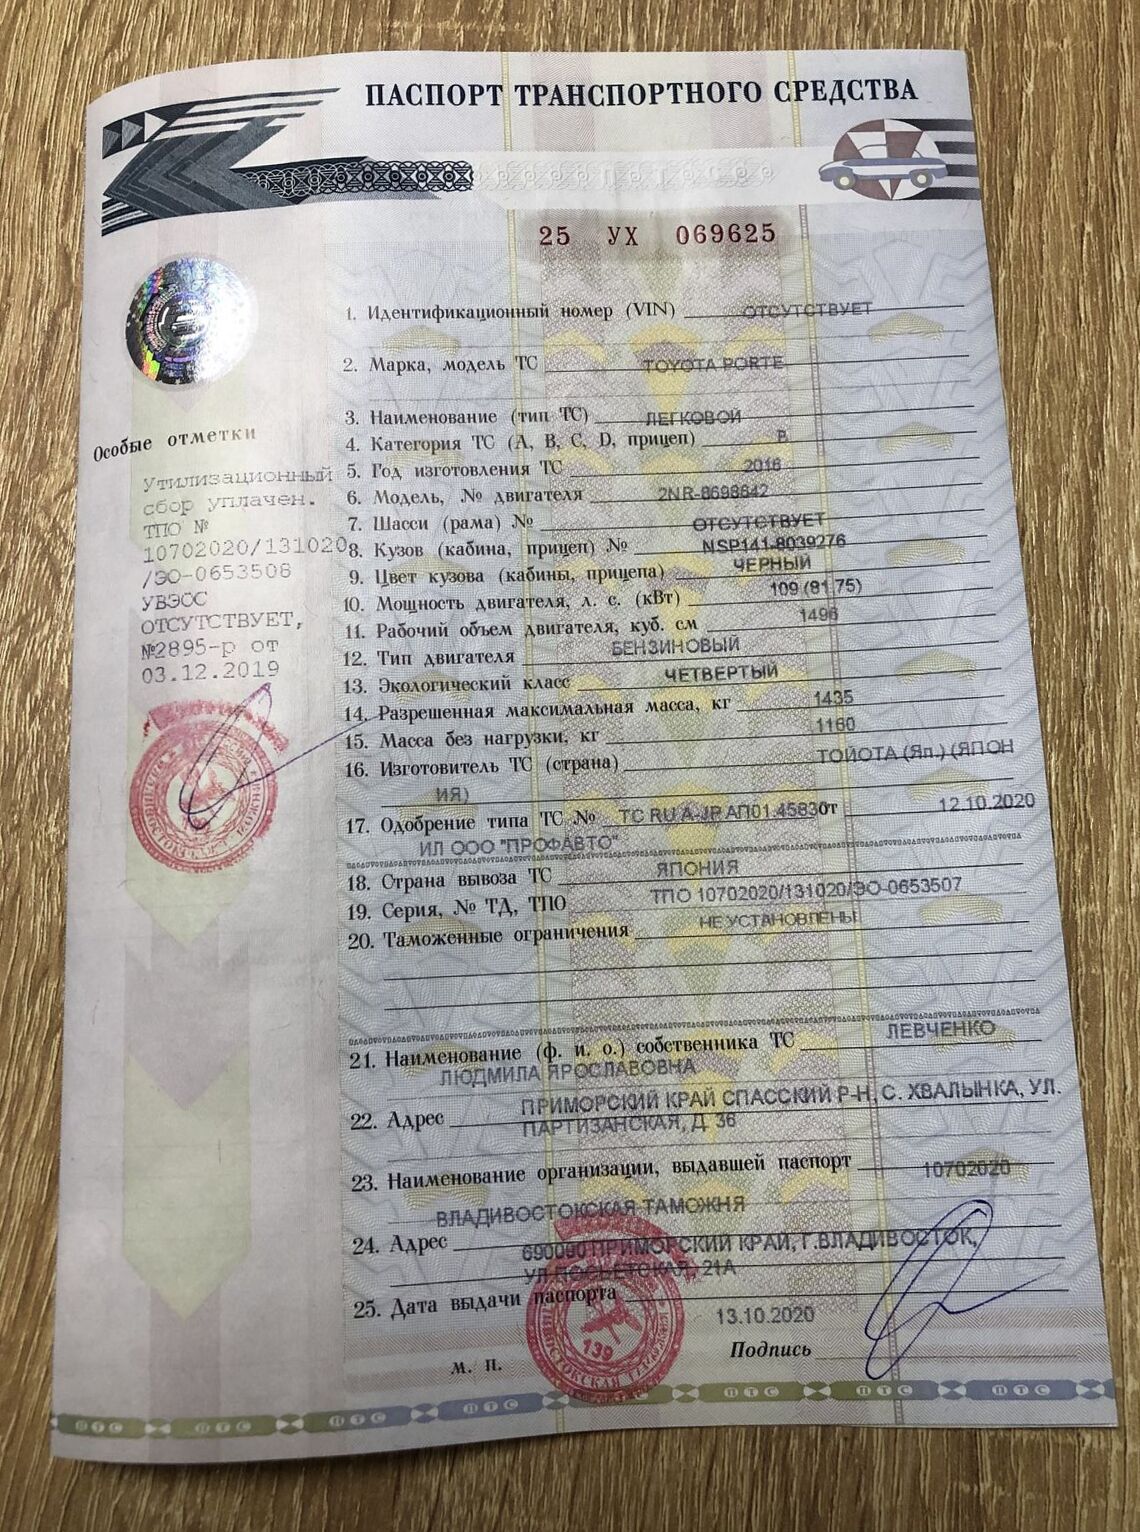 ПАСПОРТ ТРАНСПОРТНОГО СРЕДСТВА
25 УХ 069625
1. Идентификационный номер (VIN) ОТСУТСТВУЕТ
2. Марка, модель ТС TOYOTA PORTE
3. Наименование (тип ТС) ЛЕГКОВОЙ
4. Категория ТС (А, В, С, D, прицеп) В
5. Год изготовления ТС 2016
6. Модель, № двигателя 2NR-8698642
7. Шасси (рама) № ОТСУТСТВУЕТ
8. Кузов (кабина, прицеп) № NSP141-8039276
9. Цвет кузова (кабины, прицепа) ЧЕРНЫЙ
10. Мощность двигателя, л. с. (кВт) 109 (81,75)
11. Рабочий объем двигателя, куб. см 1496
12. Тип двигателя БЕНЗИНОВЫЙ
13. Экологический класс ЧЕТВЕРТЫЙ
14. Разрешенная максимальная масса, кг 1435
15. Масса без нагрузки, кг 1160
16. Изготовитель ТС (страна) ТОЙОТА (Яп.) (ЯПОН
ИЯ)
17. Одобрение типа ТС № ТС RU А-JP.АП01.45830 от 12.10.2020
ИЛ ООО "ПРОФАВТО"
18. Страна вывоза ТС ЯПОНИЯ
19. Серия, № ТД, ТПО ТПО 10702020/131020/ЭО-0653507
20. Таможенные ограничения НЕ УСТАНОВЛЕНЫ
21. Наименование (ф. и. о.) собственника ТС ЛЕВЧЕНКО
ЛЮДМИЛА ЯРОСЛАВОВНА
22. Адрес ПРИМОРСКИЙ КРАЙ СПАССКИЙ Р-Н, С. ХВАЛЫНКА, УЛ.
ПАРТИЗАНСКАЯ, Д. 36
23. Наименование организации, выдавшей паспорт 10702020
ВЛАДИВОСТОКСКАЯ ТАМОЖНЯ
24. Адрес 690090 ПРИМОРСКИЙ КРАЙ, Г.ВЛАДИВОСТОК,
УЛ ПОСЬЕТСКАЯ, 21А
25. Дата выдачи паспорта
13.10.2020
м. п. Подпись
Особые отметки
Утилизационный
сбор уплачен.
ТПО №
10702020/131020
/ЭО-0653508
УВЭОС
ОТСУТСТВУЕТ,
№2895-р от
03.12.2019
139
ПТС ПТС ПТС ПТС ПТС ПТС ПТС